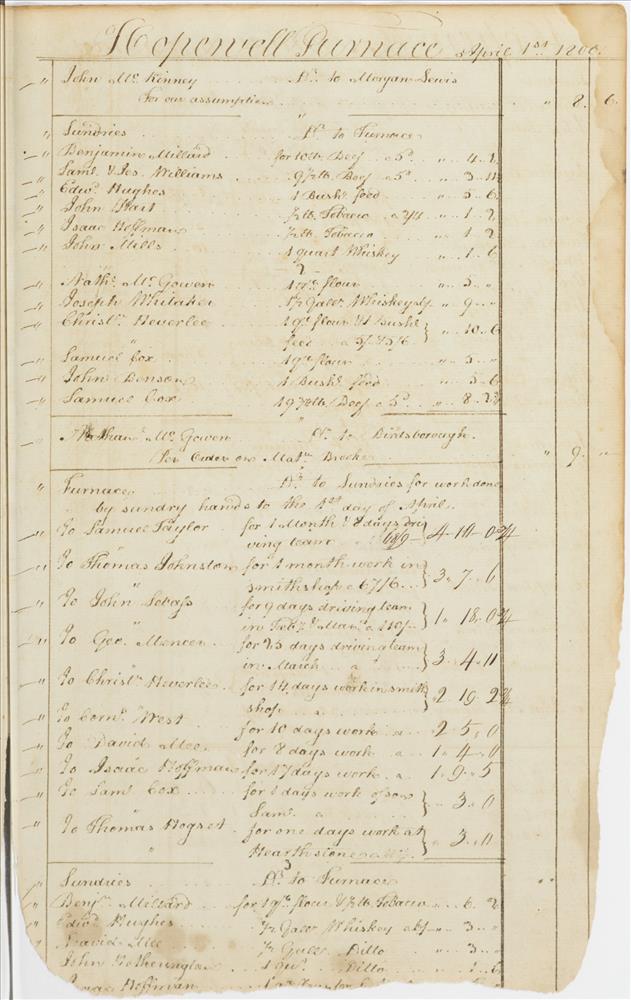 Hopewell Furnace April 1st 1800.
" John McKinney Dr. to Morgan Lewis
For our assumption " 8 6
" Sundries Dr. to Furnace
" Benjamin Millard for 10 lb Beef a 5d " 4 2
" Saml. & Jos. Williams 9 1/2 lb Beef a 5d " 3 11 1/2
" Edwd. Hughes 1 Bushl. feed " 5 6
" John Hart 1/2 lb. Tobacco a 2/4 " 1 2
" Isaac Hoffman 1/2 lb. Tobacco " 1 2
" John Mills 1 quart Whiskey " 1 6
" Nathl. McGowen 1 qr. flour " 5 "
" Joseph Whitaker Gallr. Whiskey " 9 "
" Christn. Heverlee 1 qr. flour & 1 Bushl.
feed a 5/ & 5/6 } " 10 6
" Samuel Cox 1 qr. flour " 5 "
" John Benson 1 Bushl. feed " 5 6
" Samuel Cox 19 3/4 lb Beef a 5d " 8 2 3/4
McGowen Dr. to Birdsborough.
Per Order on Matw. Brooke " 9 "
" Furnace Dr. to Sundries for work done
by sundry hands to the 1st day of April.
" To Samuel Taylor for 1 Month & 8 days dri
ving team 4 10 0 3/4
" To Thomas Johnston for 1 month work in
smith shop a 67/6 } 3 7 6
" To John for 9 days driving team
in Feby. & Mar. a 110/ } 1 18 0 3/4
" To Geo. Mencer for 23 days driving team
in March a } 3 4 11
" To Christn. Heverlee for 14 days work in smith
shop } 2 19 2 3/4
" To Corns. West for 10 days work a 2 5 0
" To David Mee for 8 days work a 1 4 0
" To Isaac Hoffman for 17 days work a 1 9 5
" To Saml. Cox for 1 days work of son
Saml. a } " 3 0
" To Thomas Hogset for one days work at
Hearthstones a } " 3 11
" Sundries Dr. to Furnace
" Benjn. Millard for 1 qr. flour & 1/2 lb. Tobacco " 6 2
" Edwd. Hughes 1/2 Gallr. Whiskey a 6/ " 3 "
" David Mee 1/2 Gallr. Ditto " 3 "
John Ditto 1 6
Isaac Hoffman